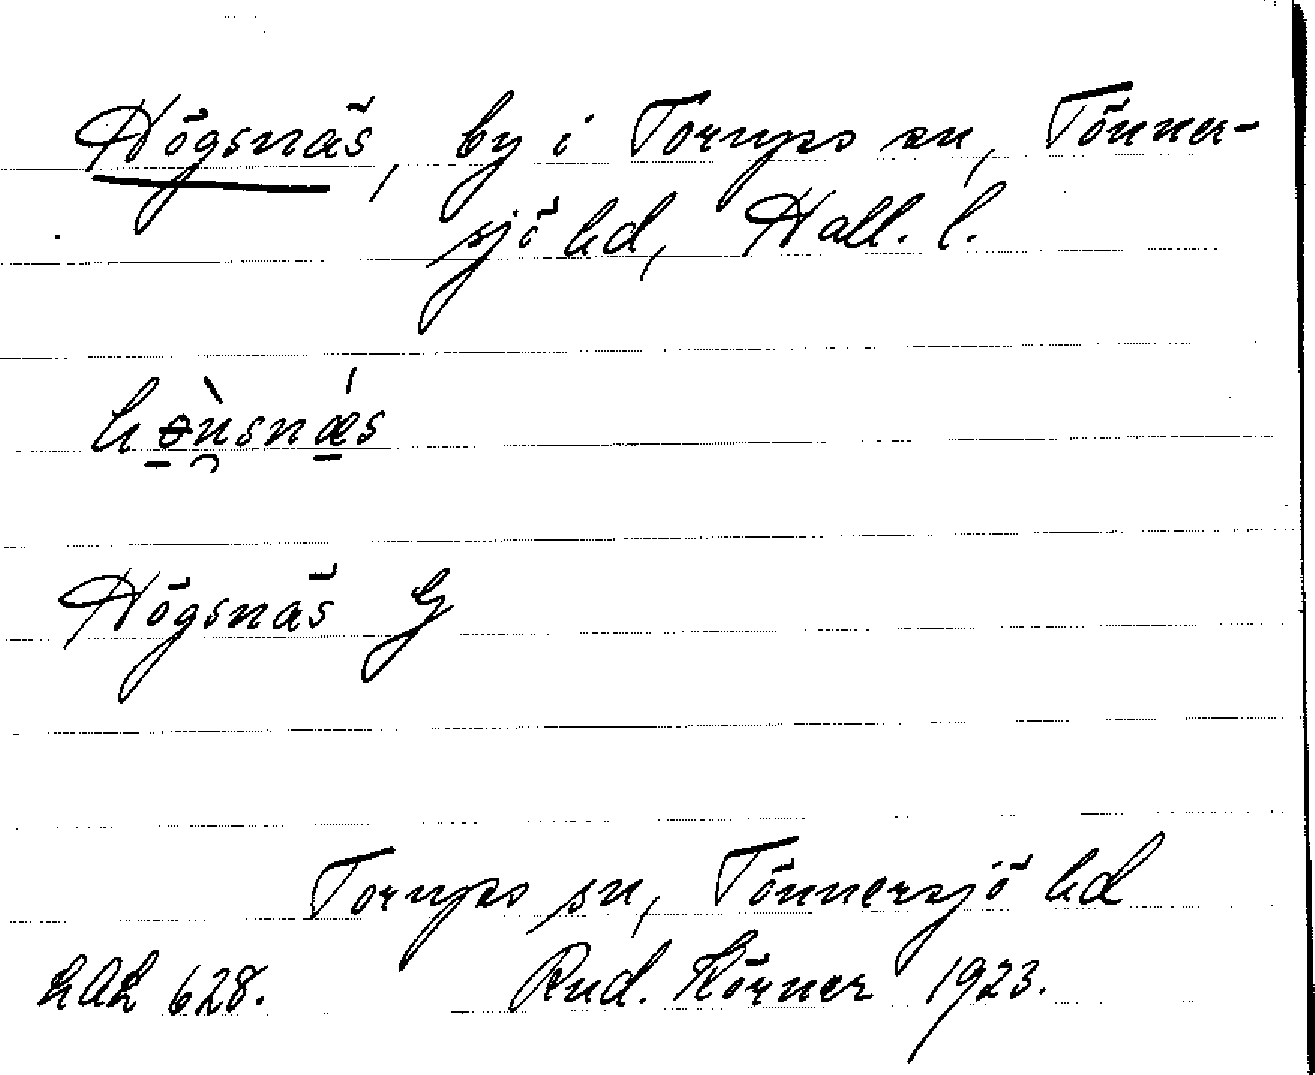 Högsnäs, by i Torups sn, Tönner-
sjö hd, Hall. l.
Högsnäs G
Torups sn, Tönnersjö hd
LAL 628. Rud. Körner 1923.